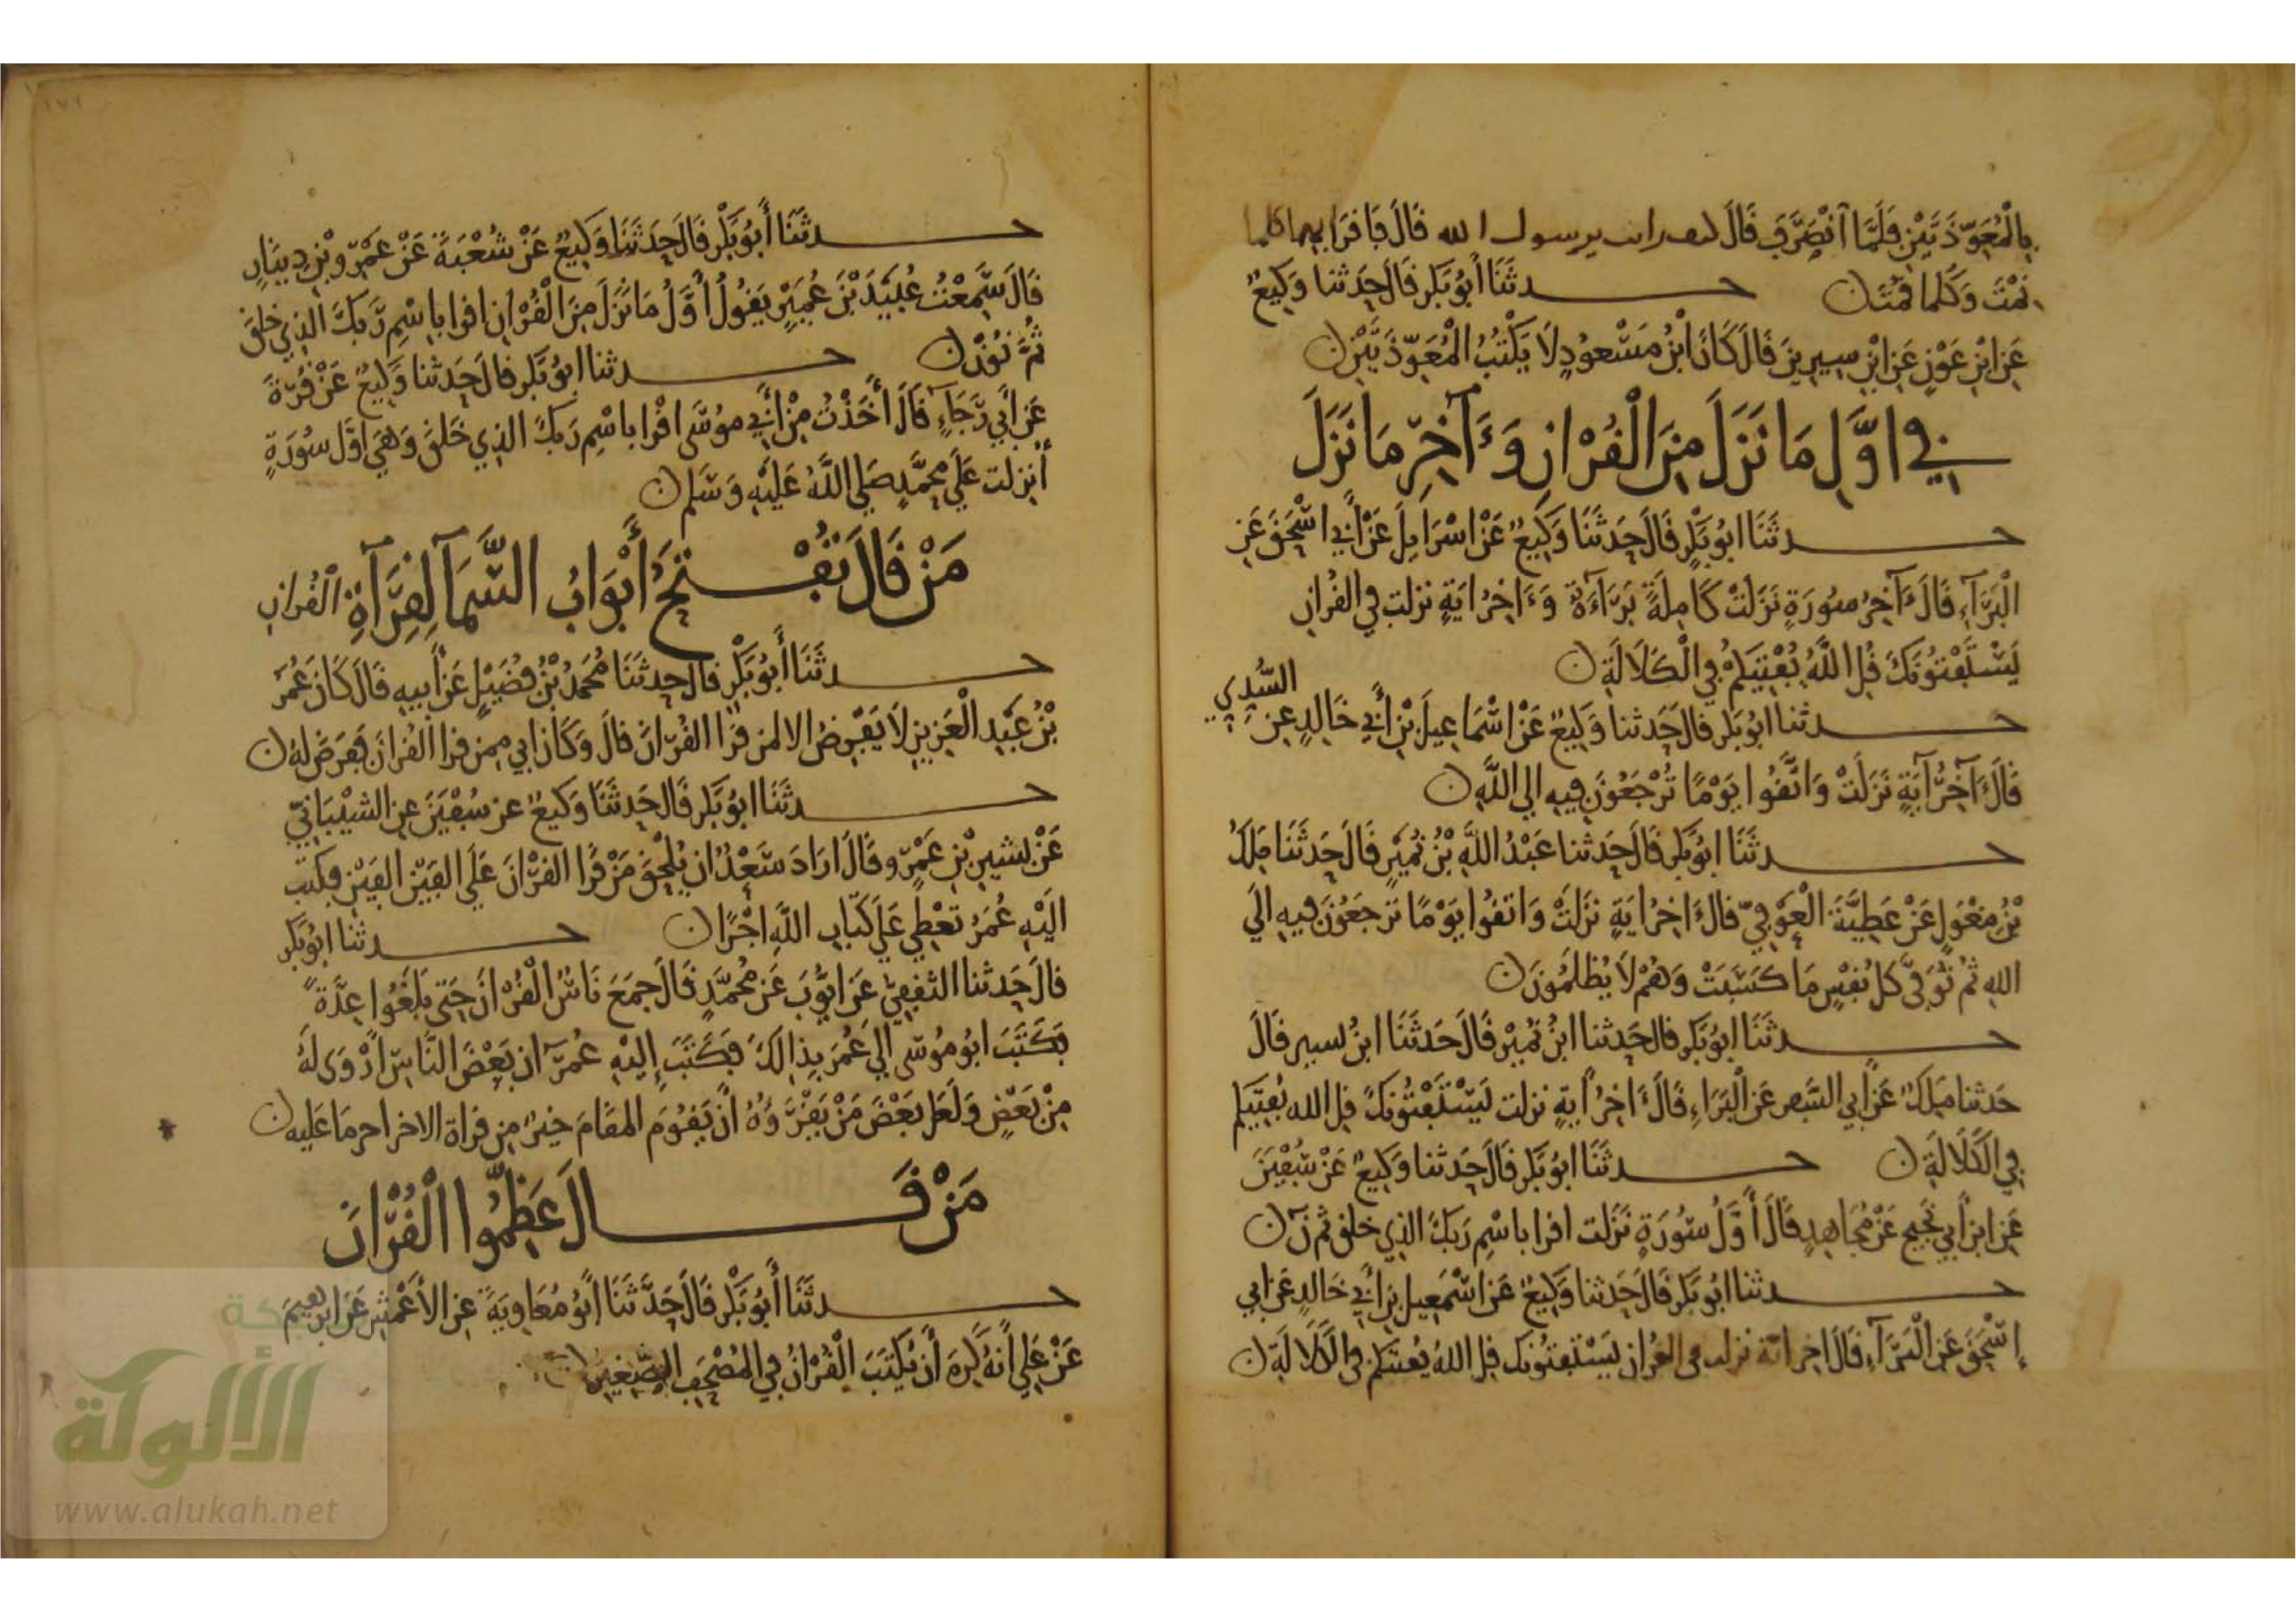 بِالْمُعَوِّذَتَيْنِ فَلَمَّا انْصَرَفَ قَالَ كيف رايت يرسول الله قَالَ فَاقْرَا بهما كلما
نِمْتَ وَكلما قمْتَ
حدثَنَا أبُو بَكر قَالَ حَدثنا وَكِيعٌ
عَنِ ابْنِ عَوْنٍ عَنِ ابْنِ سِيرِينَ قَالَ كَانَ ابْنُ مَسْعودٍ لاَ يَكْتُبُ الْمُعَوِّذَتَيْنِ
في اوَّلِ مَا نَزَلَ مِنَ الْقُرْانِ وَءَاخِرِ مَا نَزَلَ
حدثَنَا ابُو بَكْرٍ قَالَ حَدثَنَا وَكِيعٌ عَنْ اسْرَايِلَ عَنْ أَبي اسْحَقَ عَنِ
الْبَرَآءِ قَالَ ءَاخِرُ سُورَةٍ نَزَلَتْ كَامِلَةً بَرَآءَةٌ وَءَاخِرُ ايَةٍ نزلت في القُرْانِ
يَسْتَفْتُونَكَ قُلِ اللَّهُ يُفْتِيكُمْ فِي الْكَلاَلَةِ
حدثنا ابُو بَكر قالَ حَدثنا وَكِيعٌ عَنْ اسْمَاعِيلَ بْنِ أَبي خَالِدٍ عن السُّدِي
قَالَ ءَاخِرُ آيَةٍ نَزَلَتْ وَاتَّقُوا يَوْمًا تُرْجَعُونَ فِيهِ الى اللَّهِ
حدثَنَا ابُو بَكر قَالَ حَدثنا عَبْدُ اللَّهِ بْنُ نُمَيْرٍ قَالَ حَدثَنَا مَلكُ
بْنُ مِغْوَلٍ عَنْ عَطِيَّةَ الْعَوْفِيّ قالَ ءَاخِرُ ايَةٍ نَزَلَتْ وَاتقُوا يَوْمًا تُرجَعُونَ فِيهِ الَى
اللهِ ثمَّ تُوَفَّى كلُّ نَفْسٍ مَا كَسَبَتْ وَهُمْ لاَ يُظلَمُونَ
حدثَنَا ابُو بَكر قال حَدثنا ابْنُ نُمَيْر قَالَ حَدثَنَا ابنُ قَالَ
حَدثنا مَلكٌ عَنْ أَبي عَنِ الْبَرَاءِ قَالَ ءَاخِرُ ايَةٍ نزلت يَسْتَفْتُونَكَ قل الله يُفْتِيكم
فِي الكَلاَلَةِ
حدثَنَا ابُو بَكر قَالَ حَدثنا وَكِيعٌ عَنْ سُفْيَنَ
عَنِ ابْنِ أَبي نَجِيحٍ عَنْ مُجَاهِدٍ قَالَ أَوَّلُ سُورَةٍ نَزَلت اقرا باسْمِ رَبكَ الذِي خلق ثم نۤ
حدثنا ابُو بَكر قَالَ حَدثنا وَكِيعٌ عَن اسْمَعِيل بْنِ أَبي خَالدٍ عَن ابي
إِسْحَقَ عَنِ الْبَرَآءِ قَالَ اخر اية نزلت من القران يَسْتَفْتُونَك قل اللهُ يُفْتيكم في الْكَلاَلَةِ
حدثَنَا أَبُو بَكْر قَالَ حَدثَنَا وَكِيعٌ عَنْ شُعْبَةَ عَنْ عَمْرِو بْنِ دِينَارٍ
قَالَ سَمِعْتُ عُبَيْدَ بْنَ عُمَيْرٍ يَقُولُ أَوَّلُ مَا نَزَلَ مِنَ الْقُرْانِ اقرا باسْمِ رَبكَ الذِي خلقَ
ثُمَّ نُوۤنْ
حدثنا ابُو بَكر قالَ حَدثنا وَكِيعٌ عَنْ قُرَّةَ
عَنْ ابي رَجَاءٍ قَالَ أَخَذْتُ مِنْ أَبي مُوسَى اقْرا باسْمِ رَبكَ الذِي خَلقَ وَهيَ اوَّل سُورَةٍ
أُنزلت عَلَى مُحَمَّدٍ صَلى اللَّهُ عَلَيْهِ وَسَلم
مَنْ قَالَ تُفْتَحُ أَبْوَابُ السَّمَآ لِقِرَآةِ الْقُرانِ
حدثَنَا أَبُو بَكْرٍ قال حدثَنَا مُحَمدُ بْنُ فُضَيْلٍ عَنْ أَبِيهِ قَالَ كَانَ عُمَرُ
بْنُ عَبْدِ الْعَزِيزِ لاَ يَفْرِضُ الا لمن قرَا القُرْانَ قالَ وَكَانَ ابي ممن قرا القُرْانَ فَفَرَضَ لهُ
حدثَنَا ابُو بَكر قَالَ حَدثَنَا وَكيعٌ عن سُفْيَنَ عن الشيْبَانيّ
عَنْ يسَيرِ بْنِ عَمْرٍو قَالَ ارَادَ سَعْدٌ ان يُلْحِقَ مَنْ قَرَا القرْانَ عَلَى الفَيْن الفَيْن فكتبَ
الَيْهِ عُمَرُ تعْطِي عَلَى كتَابِ اللَّهِ اجْرًا
حدثنا ابُو بَكر
قالَ حَدثنا الثقفِيّ عَن ايُّوبَ عَن مُحمَّدٍ قَالَ جمَعَ نَاسٌ الْقُرْانَ حَتى بَلَغُوا عِدَّةً
فكَتَبَ ابُو مُوسَى الى عُمَرَ بِذَالكَ فكَتَبَ إِليْهِ عُمَرُ ان بَعْضَ النَّاسِ ارْوَى لَهُ
مِنْ بَعْضٍ وَلَعَل بَعْضَ مَنْ يَقْرَؤُهُ أَنْ يَقُومَ المقَامَ خيرٌ مِن قراة الاخر اخر مَا عَليه
مَنْ قَالَ عَظِّمُوا الْقُرْانَ
حدثَنَا أَبُو بَكْرٍ قَالَ حَدَّثَنَا أَبُو مُعَاوِيَةَ عن الأَعْمَشِ عَن ابرهيمَ
عَنْ عَلِي أَنهُ كَرِهَ أَنْ يُكْتَبَ الْقُرْانُ فِي المُصْحَفِ الصَّغِيرِ
الألوكة
www.alukah.net